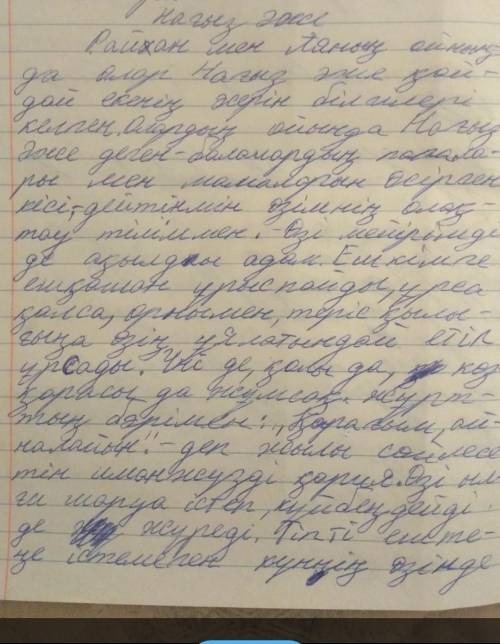 Нағыз әже
Райхан мен Ляның ойның
да олар Нағыз әже қан-
дай екенің жерін білгілері
келген. Олардың ойында Нағыз
әже деген - балалардың папала-
ры мен мамаларын өсірген
кісі, - дейтінмін өзімнің
тау тіліммен. - Өзі мейрімді
де ақылды адам. Ешкімге
ешқашан ұрыспайды, ұрса
қалса, орнымен, теріс қылы-
ғыңа өзің ұялатындай етіп
ұрсады. Үні де, қолы да, көз
қарасы да жұмсақ. Жұрт-
тың бәрімен: "Қарағым, ай-
налайын!" - деп жылы сөйлесе
тін иманжүзді қария. Өзі ыл
ғи шаруа істеп, күйбеңдейді
де жүреді. Тіпті еште-
ңе істемеген күннің өзінде